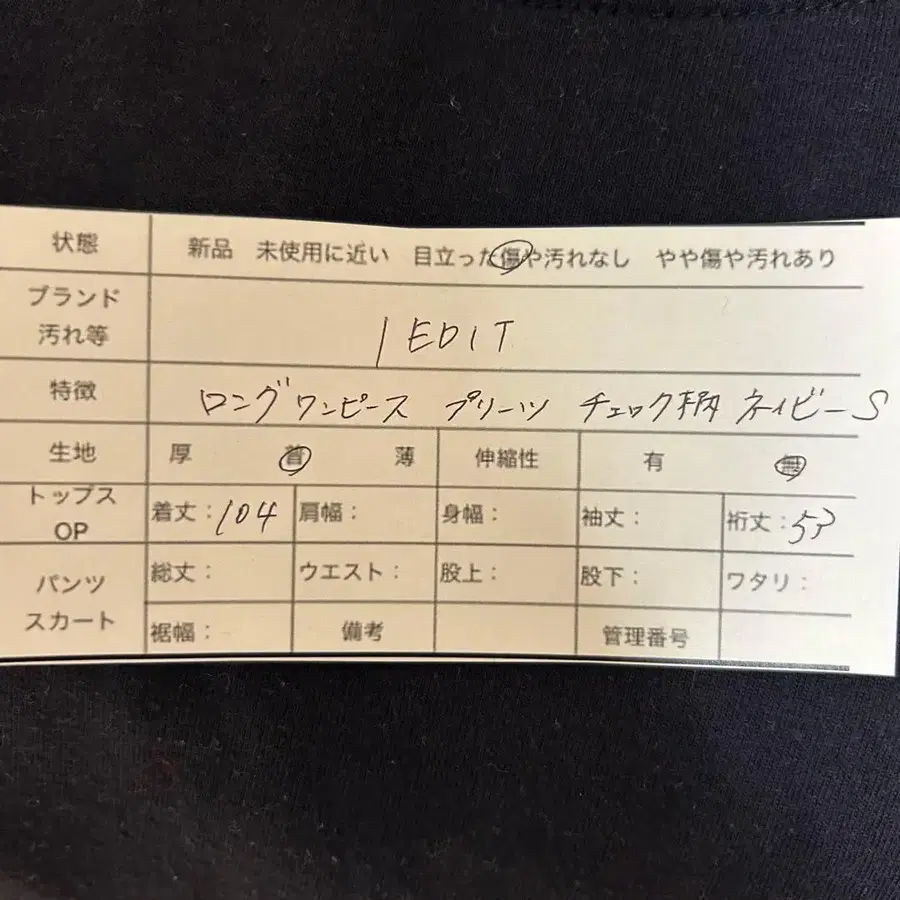 状態 新品 未使用に近い 目立った傷や汚れなし やや傷や汚れあり
ブランド
汚れ等
1 EDIT
特徴 ロングワンピース プリーツ チェック柄 ネイビー S
生地 厚 普 薄 伸縮性 有 無
トップス
OP
着丈：104 肩幅： 身幅： 袖丈： 裄丈：53
パンツ
スカート
総丈： ウエスト： 股上： 股下： ワタリ：
裾幅： 備考 管理番号